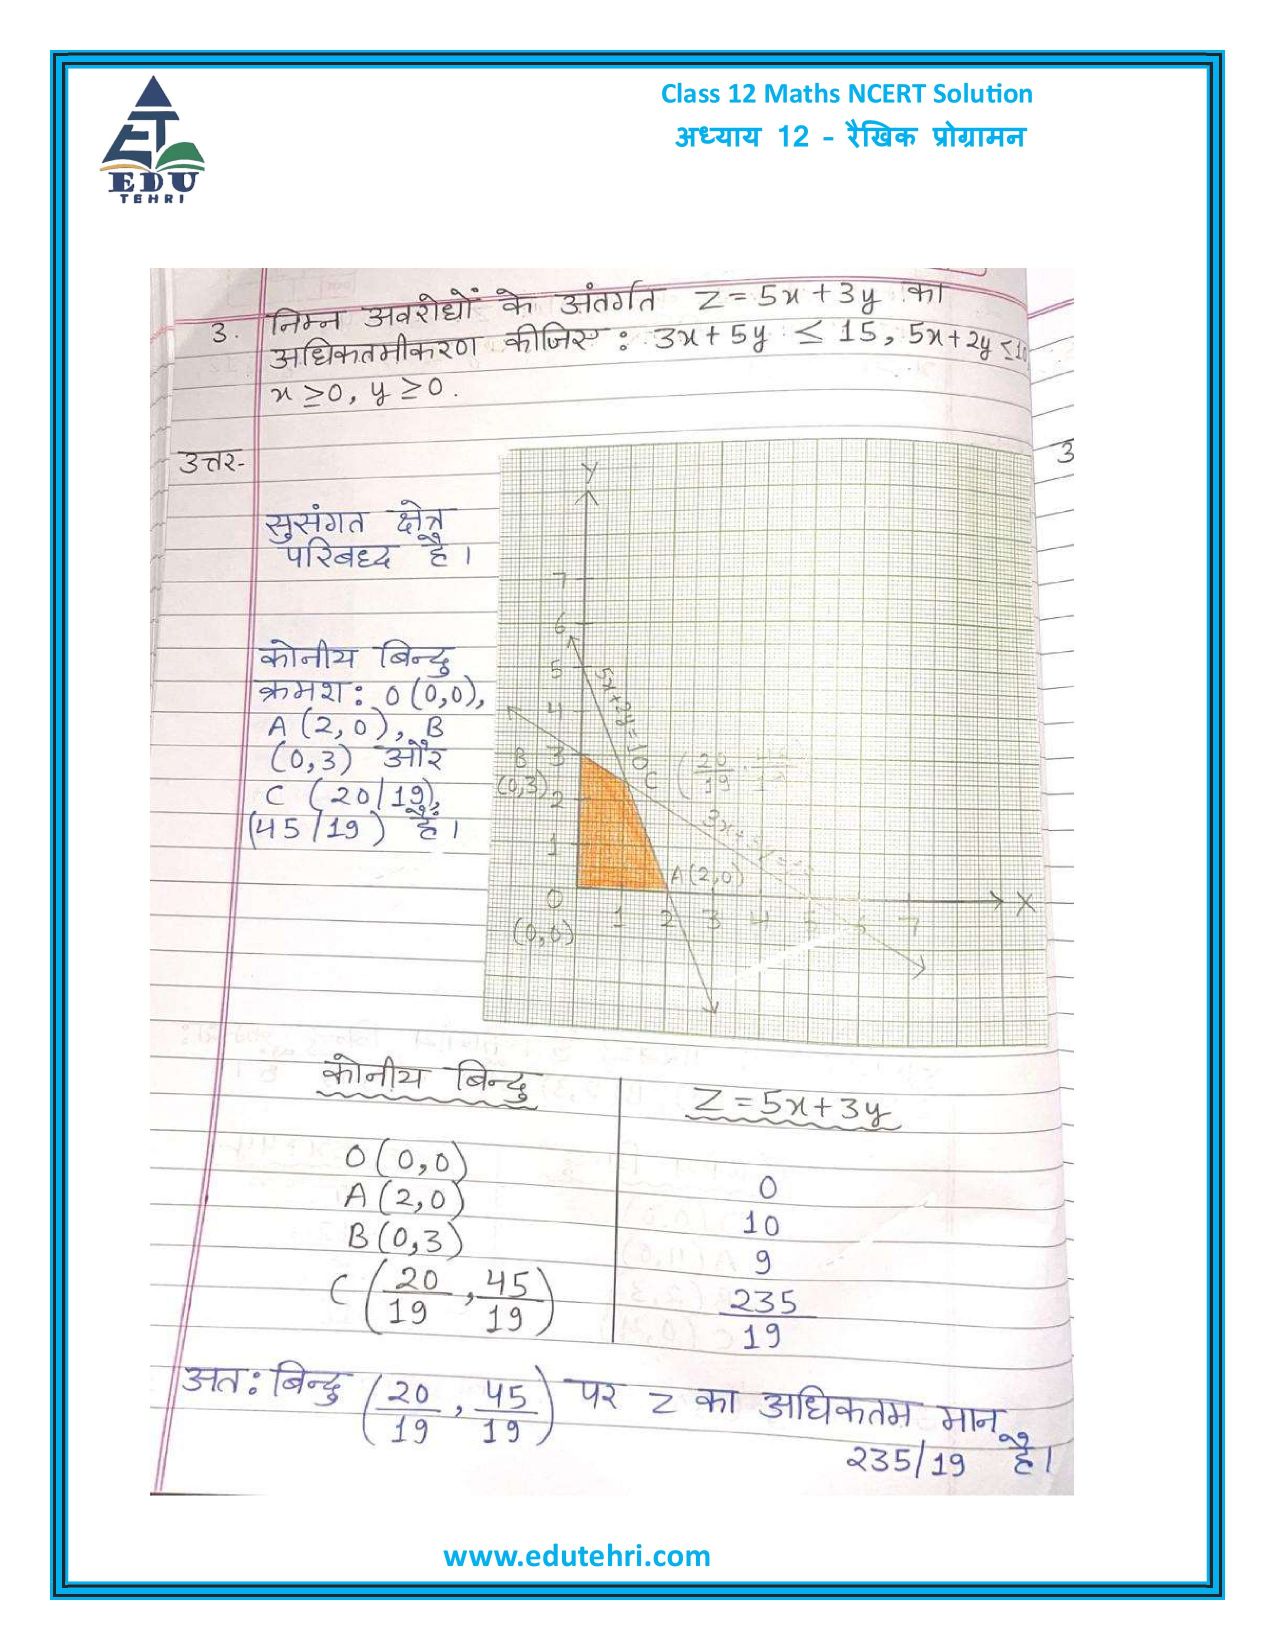 ET
EDU
TEHRI
Class 12 Maths NCERT Solution
अध्याय 12 - रैखिक प्रोग्रामन
3. निम्न अवरोधों के अंतर्गत Z = 5x + 3y का
अधिकतमीकरण कीजिए : 3x + 5y ≤ 15, 5x + 2y ≤ 10
x ≥ 0, y ≥ 0.
उत्तर-
3
सुसंगत क्षेत्र
परिबध्द है।
कोनीय बिन्दु
क्रमश: O (0,0),
A (2,0), B
(0,3) और
C (20/19),
(45/19) है।
Y
7
6
5
4
3
2
1
5x+2y=10
B
(0,3)
C (20/19,
A(2,0)
O
(0,0)
1 2 3 4 5 6 7
X
कोनीय बिन्दु
Z = 5x + 3y
O (0,0)
0
A (2,0)
10
B (0,3)
9
C (20/19, 45/19)
235/19
अत: बिन्दु (20/19, 45/19) पर Z का अधिकतम मान
235/19 है।
www.edutehri.com